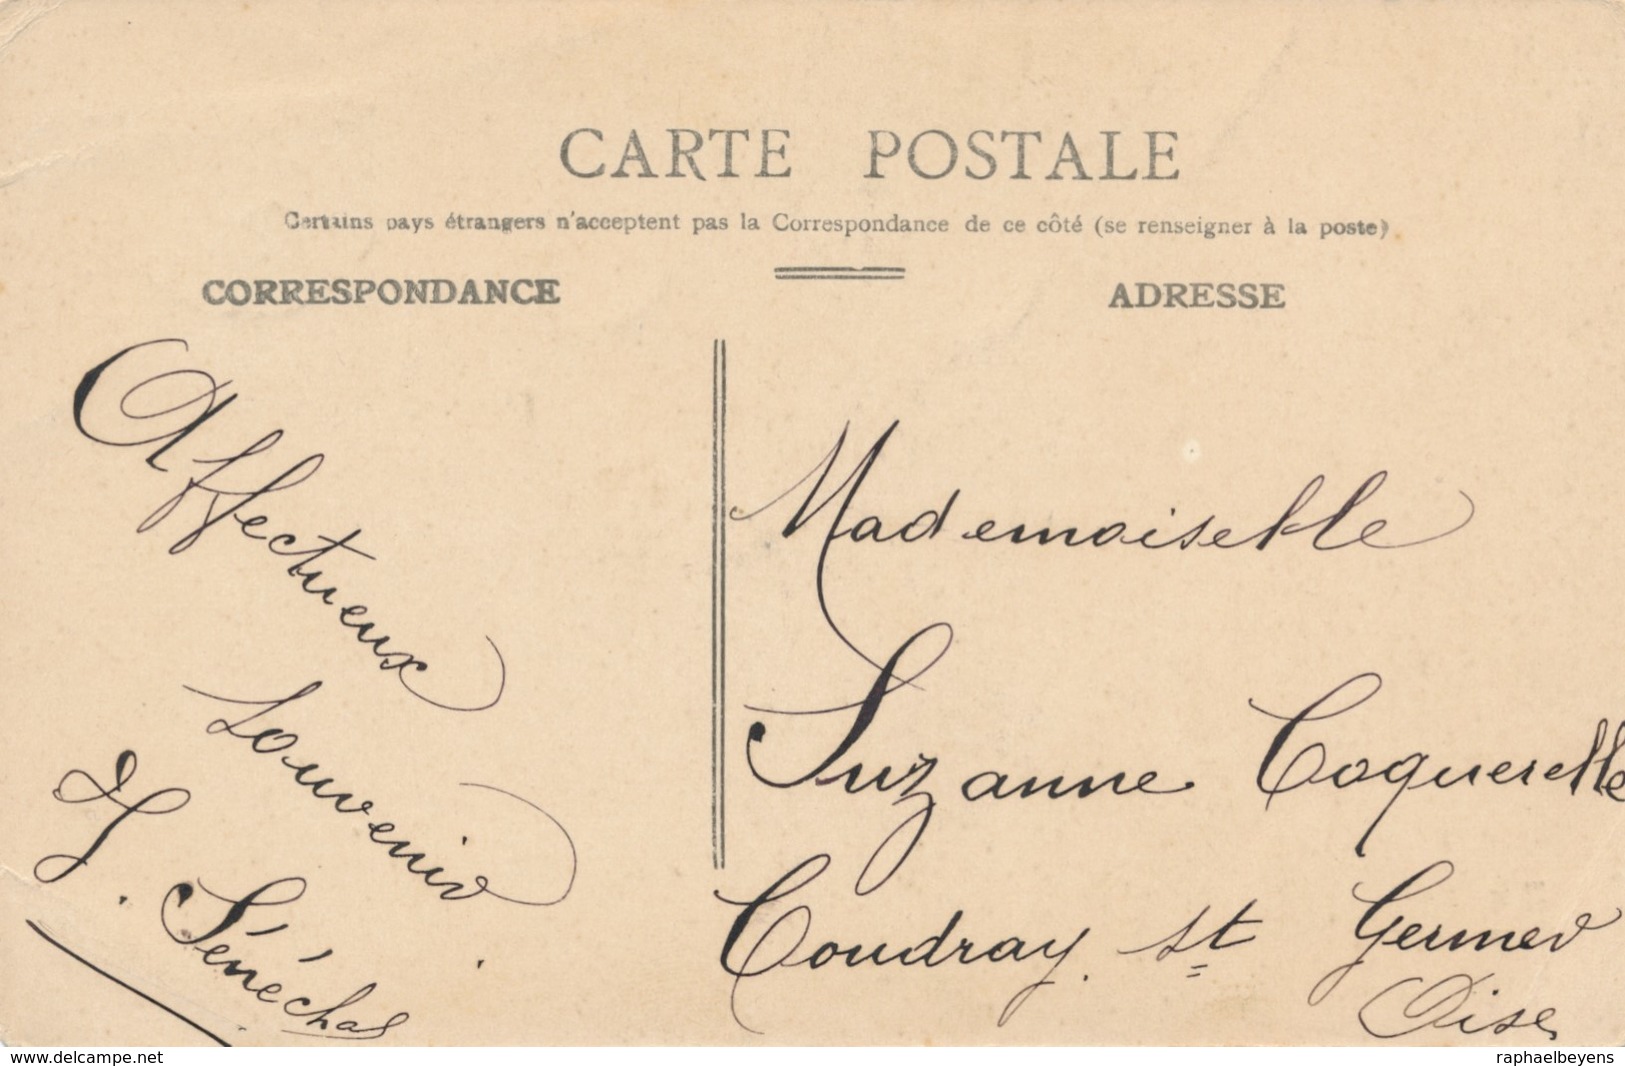 CARTE POSTALE
Certains pays étrangers n'acceptent pas la Correspondance de ce côté (se renseigner à la poste).
CORRESPONDANCE
Affectueux
Souvenir.
Sénéchal
ADRESSE
Mademoiselle
Suzanne Coquerelle
Coudray. St Germer
Oise
www.delcampe.net
raphaelbeyens